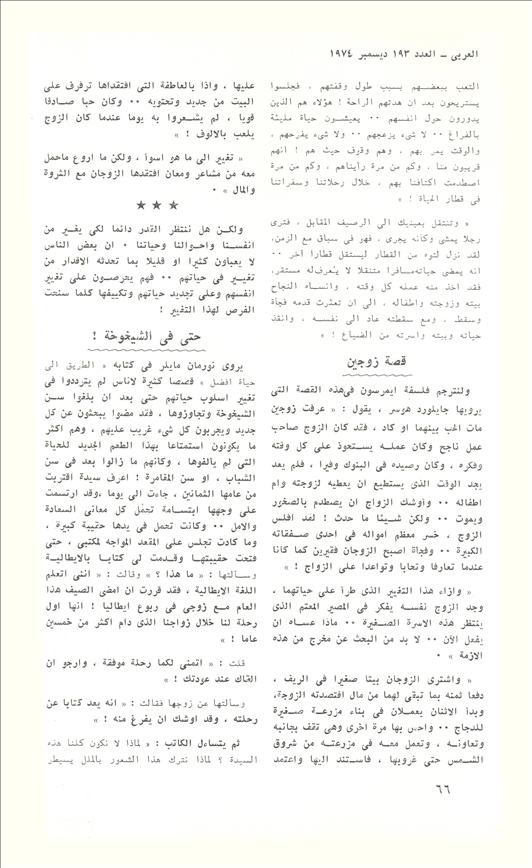 العربى – العدد ١٩٣ ديسمبر ١٩٧٤
التعب ببعضهم بسبب طول وقفتهم ، فجلسوا
يستريحون بعد ان هدتهم الراحة ! هؤلاء هم الذين
يدورون حول انفسهم ٠٠ يعيشون حياة مليئة
بالفراغ ٠٠ لا شىء يزعجهم ٠٠ ولا شىء يفرحهم ،
والوقت يمر بهم ، وهم وقوف حيث هم ! انهم
قريبون منا ، وكم من مرة رأيناهم ، وكم من مرة
اصطدمت اكتافنا بهم ، خلال رحلاتنا وسفراتنا
فى قطار الحياة ! »
« وتنتقل بعينيك الى الرصيف المقابل ، فترى
رجلا يمشى وكأنه يجرى ، فهو فى سباق مع الزمن،
لقد نزل لتوه من القطار ليستقل قطارا آخر ٠٠
انه يمضى حياته مسافرا متنقلا لا يعرف له مستقر،
فقد اخذ منه عمله كل وقته ، وانساه النجاح
بيته وزوجته واطفاله ، الى ان تعثرت قدمه فجأة
وسقط ، ومع سقطته عاد الى نفسه ، وانقذ
حياته وبيته واسرته من الضياع ! »
قصة زوجين
ولنترجم فلسفة ايمرسون فى هذه القصة التى
يرويها جايلورد هوسر ، يقول : « عرفت زوجين
مات الحب بينهما او كاد ، فقد كان الزوج صاحب
عمل ناجح وكان عمله يستحوذ على كل وقته
وفكره ، وكان رصيده فى البنوك وفيرا ، فلم يعد
يجد الوقت الذى يستطيع ان يعطيه لزوجته وأم
اطفاله ٠٠ وأوشك الزواج ان يصطدم بالصخور
ويموت ٠٠ ولكن شيئا ما حدث ! لقد افلس
الزوج ، خسر معظم امواله فى احدى صفقاته
الكبيرة ٠٠ وفجأة اصبح الزوجان فقيرين كما كانا
عندما تعارفا وتحابا وتواعدا على الزواج ! »
« وازاء هذا التغيير الذى طرأ على حياتهما ،
وجد الزوج نفسه يفكر فى المصير المعتم الذى
ينتظر هذه الاسرة الصغيرة ٠٠ ماذا عساه ان
يفعل الآن ٠٠ لا بد من البحث عن مخرج من هذه
الازمة » ٠
« واشترى الزوجان بيتا صغيرا فى الريف ،
دفعا ثمنه بما تبقى لهما من مال اقتصدته الزوجة،
وبدأ الاثنان يعملان فى بناء مزرعة صغيرة
للدجاج ٠٠ وأحس بها مرة اخرى وهى تقف بجانبه
وتعاونه ، وتعمل معه فى مزرعته من شروق
الشمس حتى غروبها ، فاستند اليها واعتمد
عليها ، واذا بالعاطفة التى افتقداها ترفرف على
البيت من جديد وتحتويه ٠٠ وكان حبا صادقا
قويا ، لم يشعروا به يوما عندما كان الزوج
يلعب بالالوف ! »
« تغيير الى ما هو اسوأ ، ولكن ما اروع ما حمل
معه من مشاعر ومعان افتقدها الزوجان مع الثروة
والمال » ٠
★ ★ ★
ولكن هل ننتظر القدر دائما لكى يغير من
انفسنا واحوالنا وحياتنا ٠ ان بعض الناس
لا يعبأون كثيرا او قليلا بما تحدثه الاقدار من
تغيير فى حياتهم ٠٠ فهم يحرصون على تغيير
انفسهم وعلى تجديد حياتهم وتكييفها كلما سنحت
الفرص لهذا التغيير !
حتى فى الشيخوخة !
يروى نورمان مايلر فى كتابه « الطريق الى
حياة افضل » قصصا كثيرة لاناس لم يترددوا فى
تغيير اسلوب حياتهم حتى بعد ان بلغوا سن
الشيخوخة وتجاوزوها ، فقد مضوا يبحثون عن كل
جديد ويجربون كل شىء غريب عليهم ، وهم اكثر
ما يكونون استمتاعا بهذا الطعم الجديد للحياة
التى لم يألفوها ، وكأنهم ما زالوا بعد فى سن
الشباب ، او سن المقامرة ! اعرف سيدة اقتربت
من عامها الثمانين ، جاءت الى يوما ،وقد ارتسمت
على وجهها ابتسامة تحمل كل معانى السعادة
والامل ٠٠ وكانت تحمل فى يدها حقيبة كبيرة ،
وما كادت تجلس على المقعد المواجه لمكتبى ، حتى
فتحت حقيبتها وقدمت لى كتابا بالايطالية
وسألتها : « ما هذا ؟ » وقالت : « اننى اتعلم
اللغة الايطالية ، فقد قررت ان امضى الصيف هذا
العام مع زوجى فى ربوع ايطاليا ! انها اول
رحلة لنا خلال زواجنا الذى دام اكثر من خمسين
عاما ! »
قلت : « اتمنى لكما رحلة موفقة ، وارجو ان
القاك عند عودتك ! »
وسألتها عن زوجها فقالت : « انه يعد كتابا عن
رحلته ، وقد اوشك ان يفرغ منه ! »
ثم يتساءل الكاتب : « لماذا لا نكون كلنا هذه
السيدة ؟ لماذا نترك هذا الشعور بالملل يسيطر
٦٦